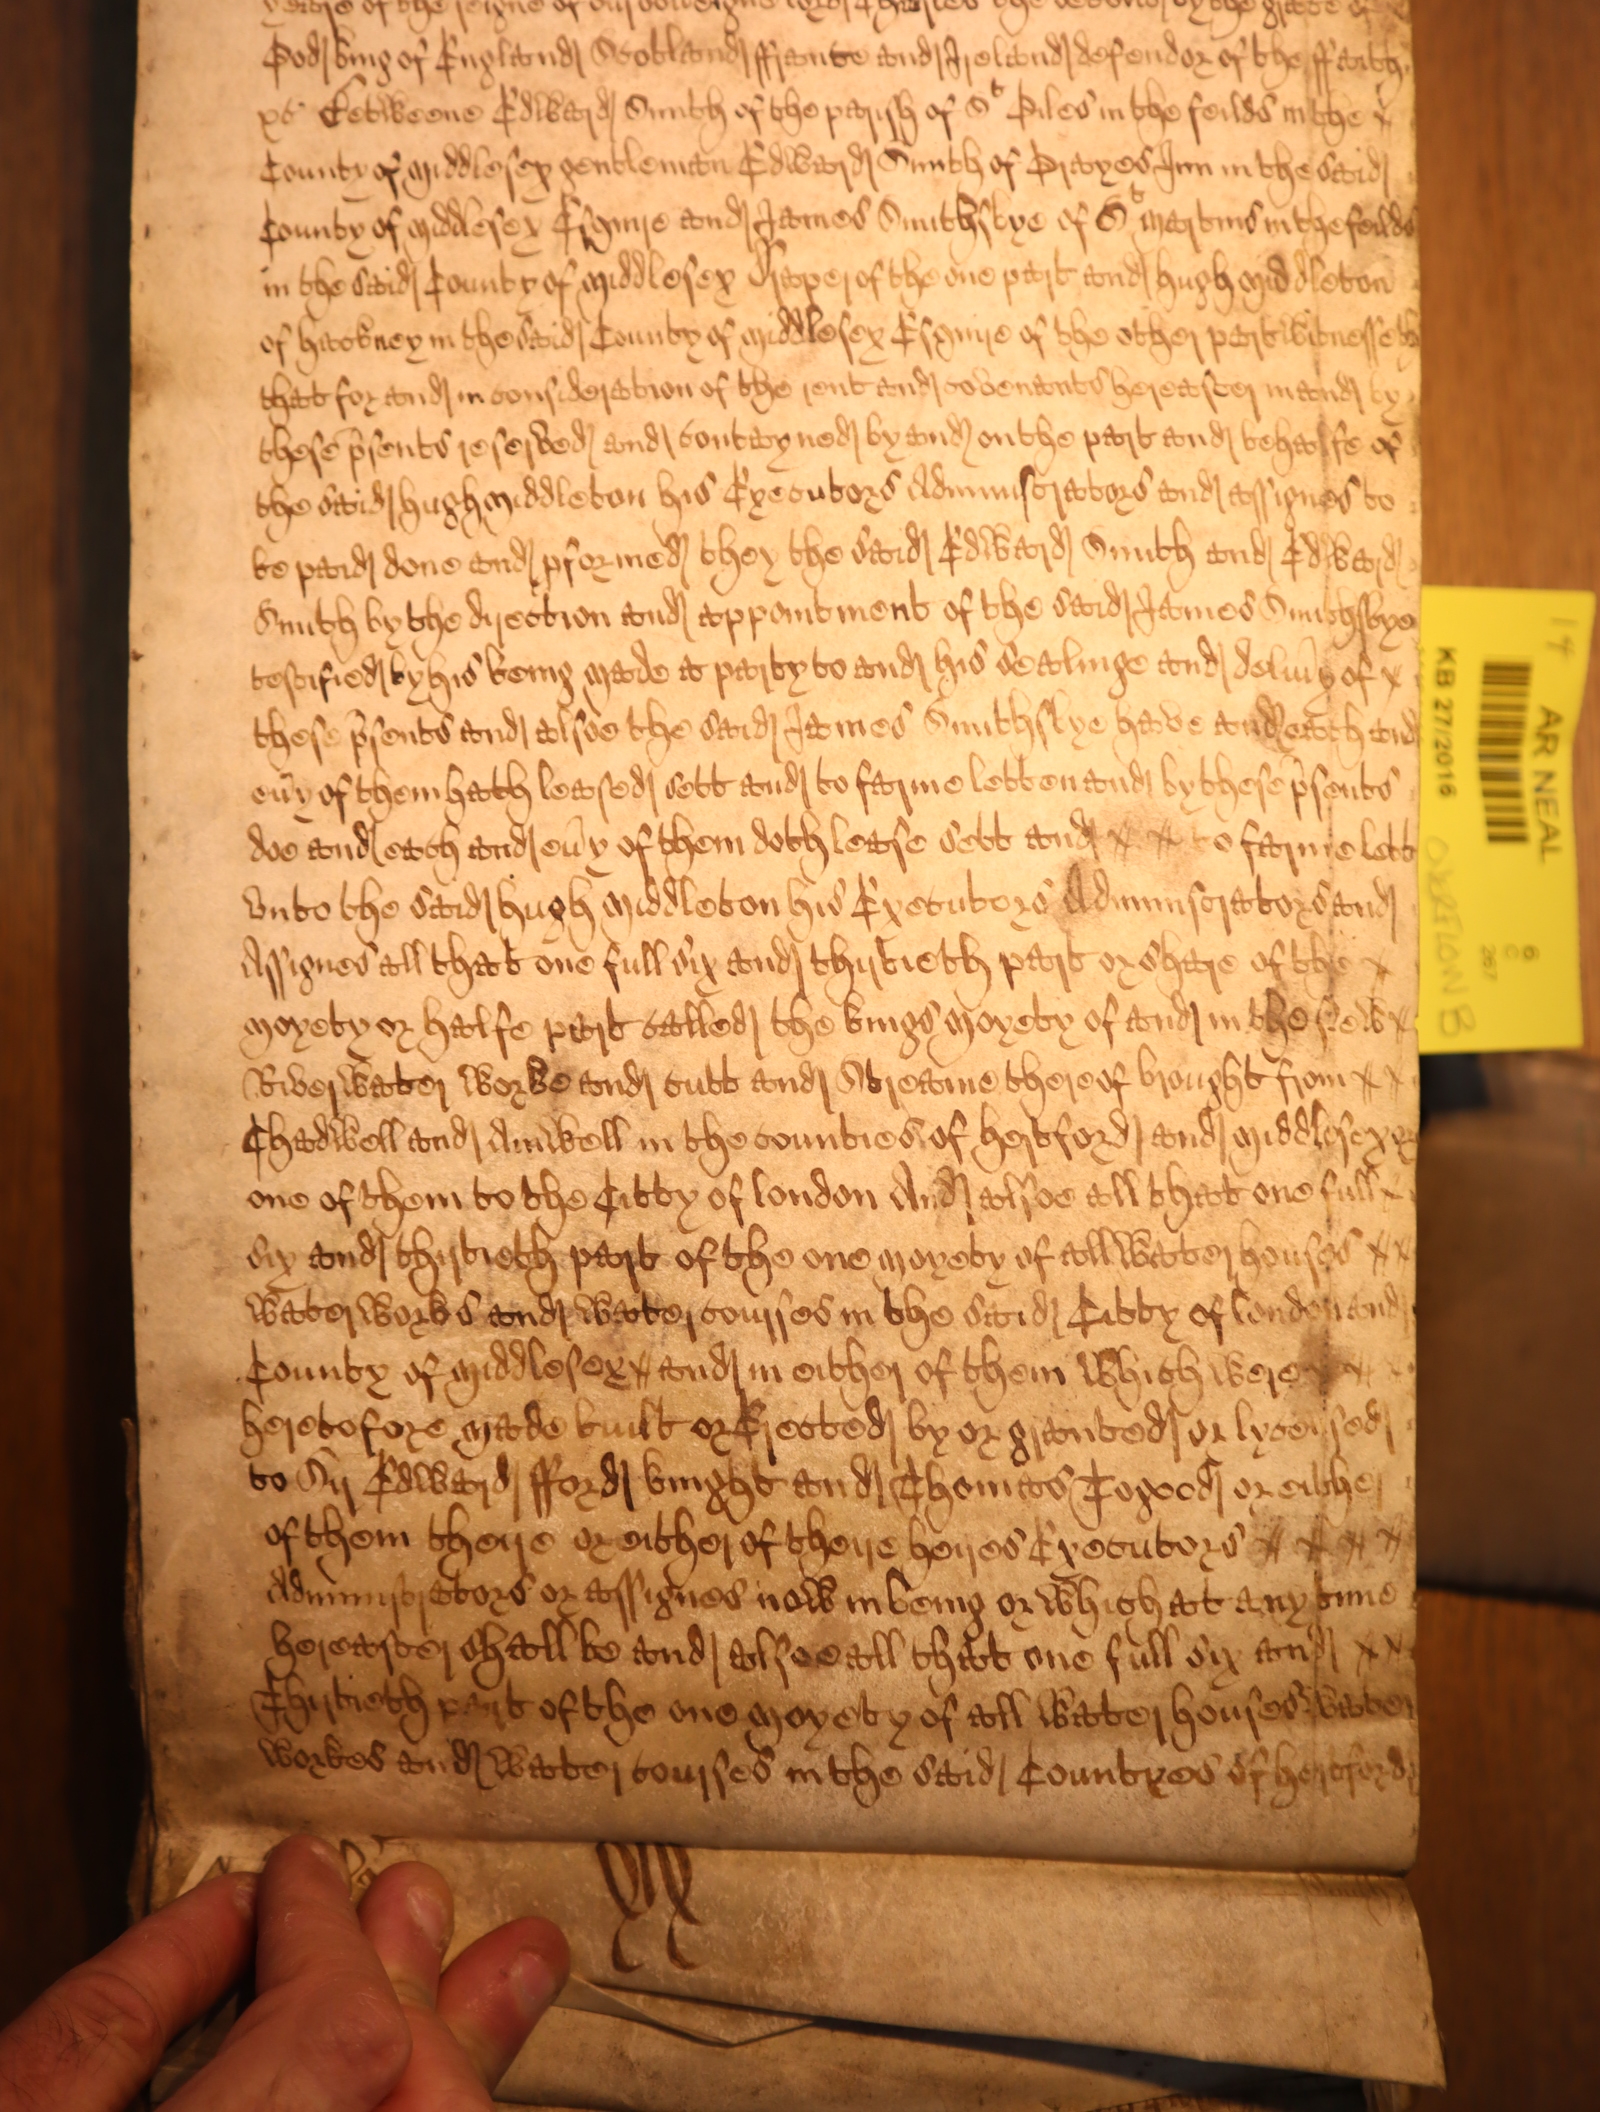 yeare of the reigne of our soveraigne lord Charles the second by the grace of
God king of England Scotland ffrance and Ireland defendor of the ffaith
xc Betweene Edward Smith of the parish of St Giles in the feilds in the
County of Middlesex gentleman Edward Smith of Grayes Inn in the said
County of Middlesex Esquire and James Smithsbye of St Martins in the feilds
in the said County of Middlesex Draper of the one part and Hugh Middleton
of Hackney in the said County of Middlesex Esquire of the other part Witnesseth
that for and in consideration of the rent and covenants hereafter in and by
these psents reserved and contayned by and on the part and behalfe of
the said Hugh Middleton his Executors Administrators and assignes to
be paid done and pformed they the said Edward Smith and Edward
Smith by the direction and appointment of the said James Smithsbye
testified by his being made a party to and his sealinge and delivy of
these psents and alsoe the said James Smithsbye have and each and
evy of them hath leased sett and to farme letten and by these psents
doe and each and evy of them doth lease sett and to farme lett
vnto the said Hugh Middleton his Executors Administrators and
Assignes all that one full six and thirtieth part or share of the
moyety or halfe part called the kings moyety of and in the New
River Water Worke and cutt and Streame thereof brought from
Chadwell and Amwell in the counties of Hertford and Middlesex or
one of them to the Citty of London And alsoe all that one full
six and thirtieth part of the one moyety of all Water houses
Water Works and Water courses in the said Citty of London and
County of Middlesex and in either of them Which were
heretofore made built or Erected by or granted or lycensed
to Sir Edward fford knight and Thomas Togood or either
of them theire or either of theire heires Executors
Administrators or assignes now in being or Which at any time
hereafter shall be and alsoe all that one full six and
Thirtieth part of the one moyety of all Water houses Water
Workes and Water courses in the said Countyes of Hertford
AR NEAL
KB 27/2016
14
6
C
267